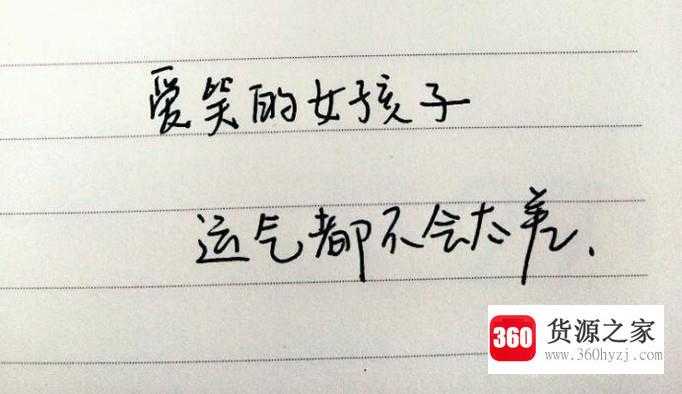 爱笑的女孩子
运气都不会太差.
360 货源之家
www.360hyzj.com